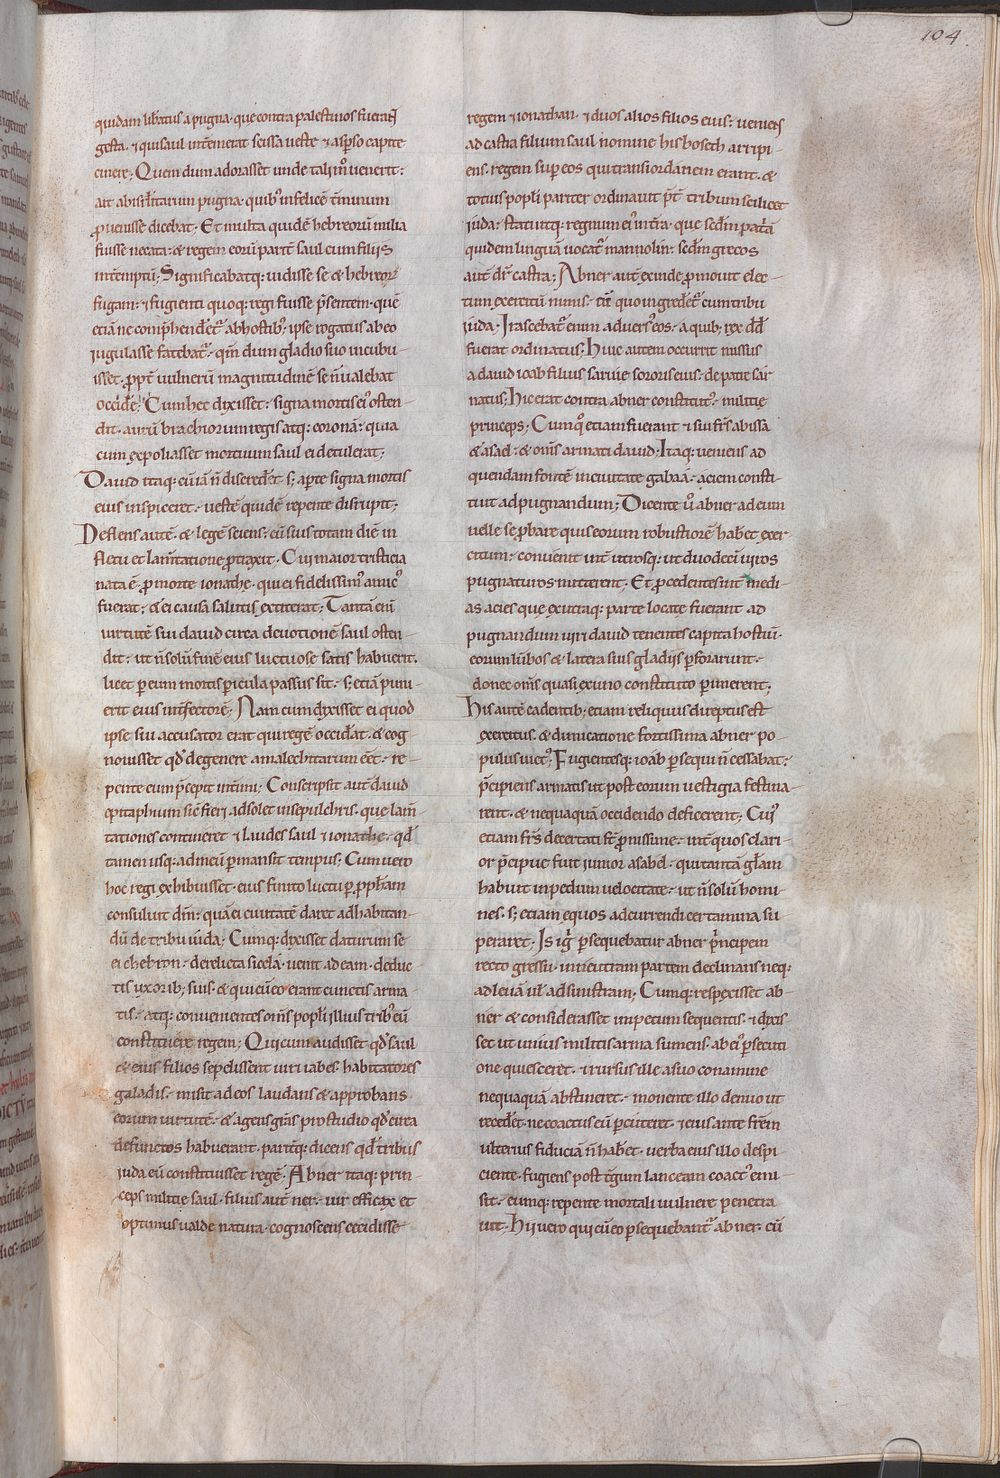 104.
quidam lib̄atus a pugna· que contra palestinos fuerat
gesta· ⁊ qui saul intemerat scissa ueste ⁊ asp̄so capite
cinere; Quem dum adorasset unde talit̄ uenerit:
ait ab isrl̄itarum pugna· quib; infelicē t̄minum
ꝓuenisse dicebat; Et multa quidē hebreorū milia
fuisse necata: & regem eorū parit̄ saul cum filiis
int̄emptū; Significabatq; uidisse se & hebreoꝝ
fugam: ⁊ fugienti quoq; regi fuisse p̄sentem· quē
etiā ne comp̄henderet̄ ab hostib; ipse rogatus ab eo
iugulasse fatebat̄· qm̄ dum gladio suo incubu-
isset· ꝓpt̄ uulnerū magnitudinē se n̄ ualebat
occidē; Cum hec dixisset: signa mortis ei; osten-
dit· aurū brachiorum regis atq; coronā: quia
cum expoliasset mortuum saul ei detulerat;
Dauid itaq; cū iā n̄ discrederet s; apte signa mortis
eius inspiceret· uestē quidē repente disrupit;
Deflens autē· & legē sciens: cū suis totam diē in
fletu et lam̄tatione ꝓtraxit· Cui maior tristicia
nata ē· ꝓ morte ionathe· qui ei fidelissim; amic;
fuerat; & ei causa salutis extiterat; Tantā eni
uirtutē sui dauid circa deuotionē saul osten-
dit· ut n̄ solū finē eius luctuose satis habuerit·
licet p eum mortis picula passus sit· s; etiā puni-
erit eius int̄fectorē; Nam cum dixisset ei quod
ipse sui accusator erat qui regē occiderat· & cog
nouisset qd̄ degenere amalechitarum eēt· re-
pente eum p̄cepit int̄imi; Conscripsit aut̄ dauid
epitaphium sic̄ fieri adsolet in sepulchris· que lam̄-
tationes contineret ⁊ laudes saul ⁊ ionathe· qd̄
tamen usq; ad meū pmansit tempus; Cum uero
hoc regi exhibuisset· eius finito luctu ꝑ ꝓph̄am
consuluit dm̄: quā ei ciuitatē daret ad habitan-
dū de tribu iuda; Cumq; dixisset daturum se
ei chebron: derelicta sicela· uenit ad eam· deduc-
tis uxorib; suis· & quicūeo erant cunctis arma-
tis· atq; conuenientes om̄s popl̄i illius trib; eū
constituere regem; Qui cum audisset qd̄ saul
& eius filios sepelissent uiri iabes· habitatores
galadis· misit ad eos laudans & approbans
eorum uirtutē· & agens gr̄as pro studio qd̄ circa
defunctos habuerant· parit̄q; dicens qd̄ tribus
iuda eū constituisset regē· Abner itaq; prin-
ceps militie saul· filius aut̄ ner· uir efficax et
optimus ualde natura· cognoscens cecidisse
regem ⁊ ionathan· ⁊ duos alios filios eius: ueniens
ad castra filium saul nomine hisboseth arripi-
ens· regem sup eos qui trans iordanem erant· &
totius popl̄i pariter ordinauit p̄t̄ tribum scilicet
iuda· statuitq; regnum ei; int̄ra· que sed̄m pat̄a
quidem linguā uocat̄ mannolin: sed̄m grecos
aut̄ dr̄ castra; Abner aut̄ exinde ꝓmouit elec-
tum exercitū nimis· cū quo ingrederet̄ cum tribu
iuda· Irascebat̄ enim aduers; eos· a quib; rex dd̄
fuerat ordinatus; Huic autem occurrit missus
a dauid ioab filius saruie sororis eius· de patre sar
natus; Hic erat contra abner constitut;· militie
princeps; Cumq; etiam fuerant ⁊ sui fr̄s abissa
& asael· & om̄s armati dauid· Itaq; ueniens ad
quendam fontē in ciuitate gabaā· aciem consti-
tuit ad pugnandum; Dicente ū abner ad eum
uelle se ꝓbare quis eorum robustiorē haberet exer
citum: conuenit int̄ utrosq; ut duodecī uiros
pugnaturos mitterent· Et ꝓcedentes int̄ medi-
as acies que ex utraq; parte locate fuerant ad
pugnandum uiri dauid tenentes capita hostiū·
eorum lūbos & latera suis gladiis pforarunt·
donec om̄s quasi ex uno constituto pimerent;
His autē cadentib; etiam reliquus direptus est
exercitus· & dimicatione fortissima abner po-
pulus uict; Fugientesq; ioab psequi n̄ cessabat·
p̄cipiens armatis ut post eorum uestigia festina-
rent· & nequaquā occidendo deficerent; Cui;
etiam fr̄s decertati st̄ pmissime· int̄ quos clari-
or p̄cipue fuit iunior asahel· qui tantā gl̄am
habuit in pedum uelocitate· ut n̄ solū homi-
nes· s; etiam equos ad currendi certamina su-
peraret· Is igr̄ psequebatur abner p̄ncipem
recto gressu· in neutram partem declinans neq;
ad leuā ul̄ ad sinistram; Cumq; respexisset ab-
ner & considerasset impetum sequentis· ⁊ dixis
set ut unius militis arma sumens· ab ei; psecuti
one quiesceret· ⁊ rursus ille a suo conamine
nequaquā abstineret· monente illo denuo ut
recederet· ne coactus eū pcuteret ⁊ eius ante frēm
ulterius fiduciā n̄ haberet· uerba eius illo despi-
ciente· fugiens post t̄gum lanceam coact; emi-
sit· eumq; repente mortali uulnere penetra
uit· Hi uero qui cūeo psequebant̄ abner· cū